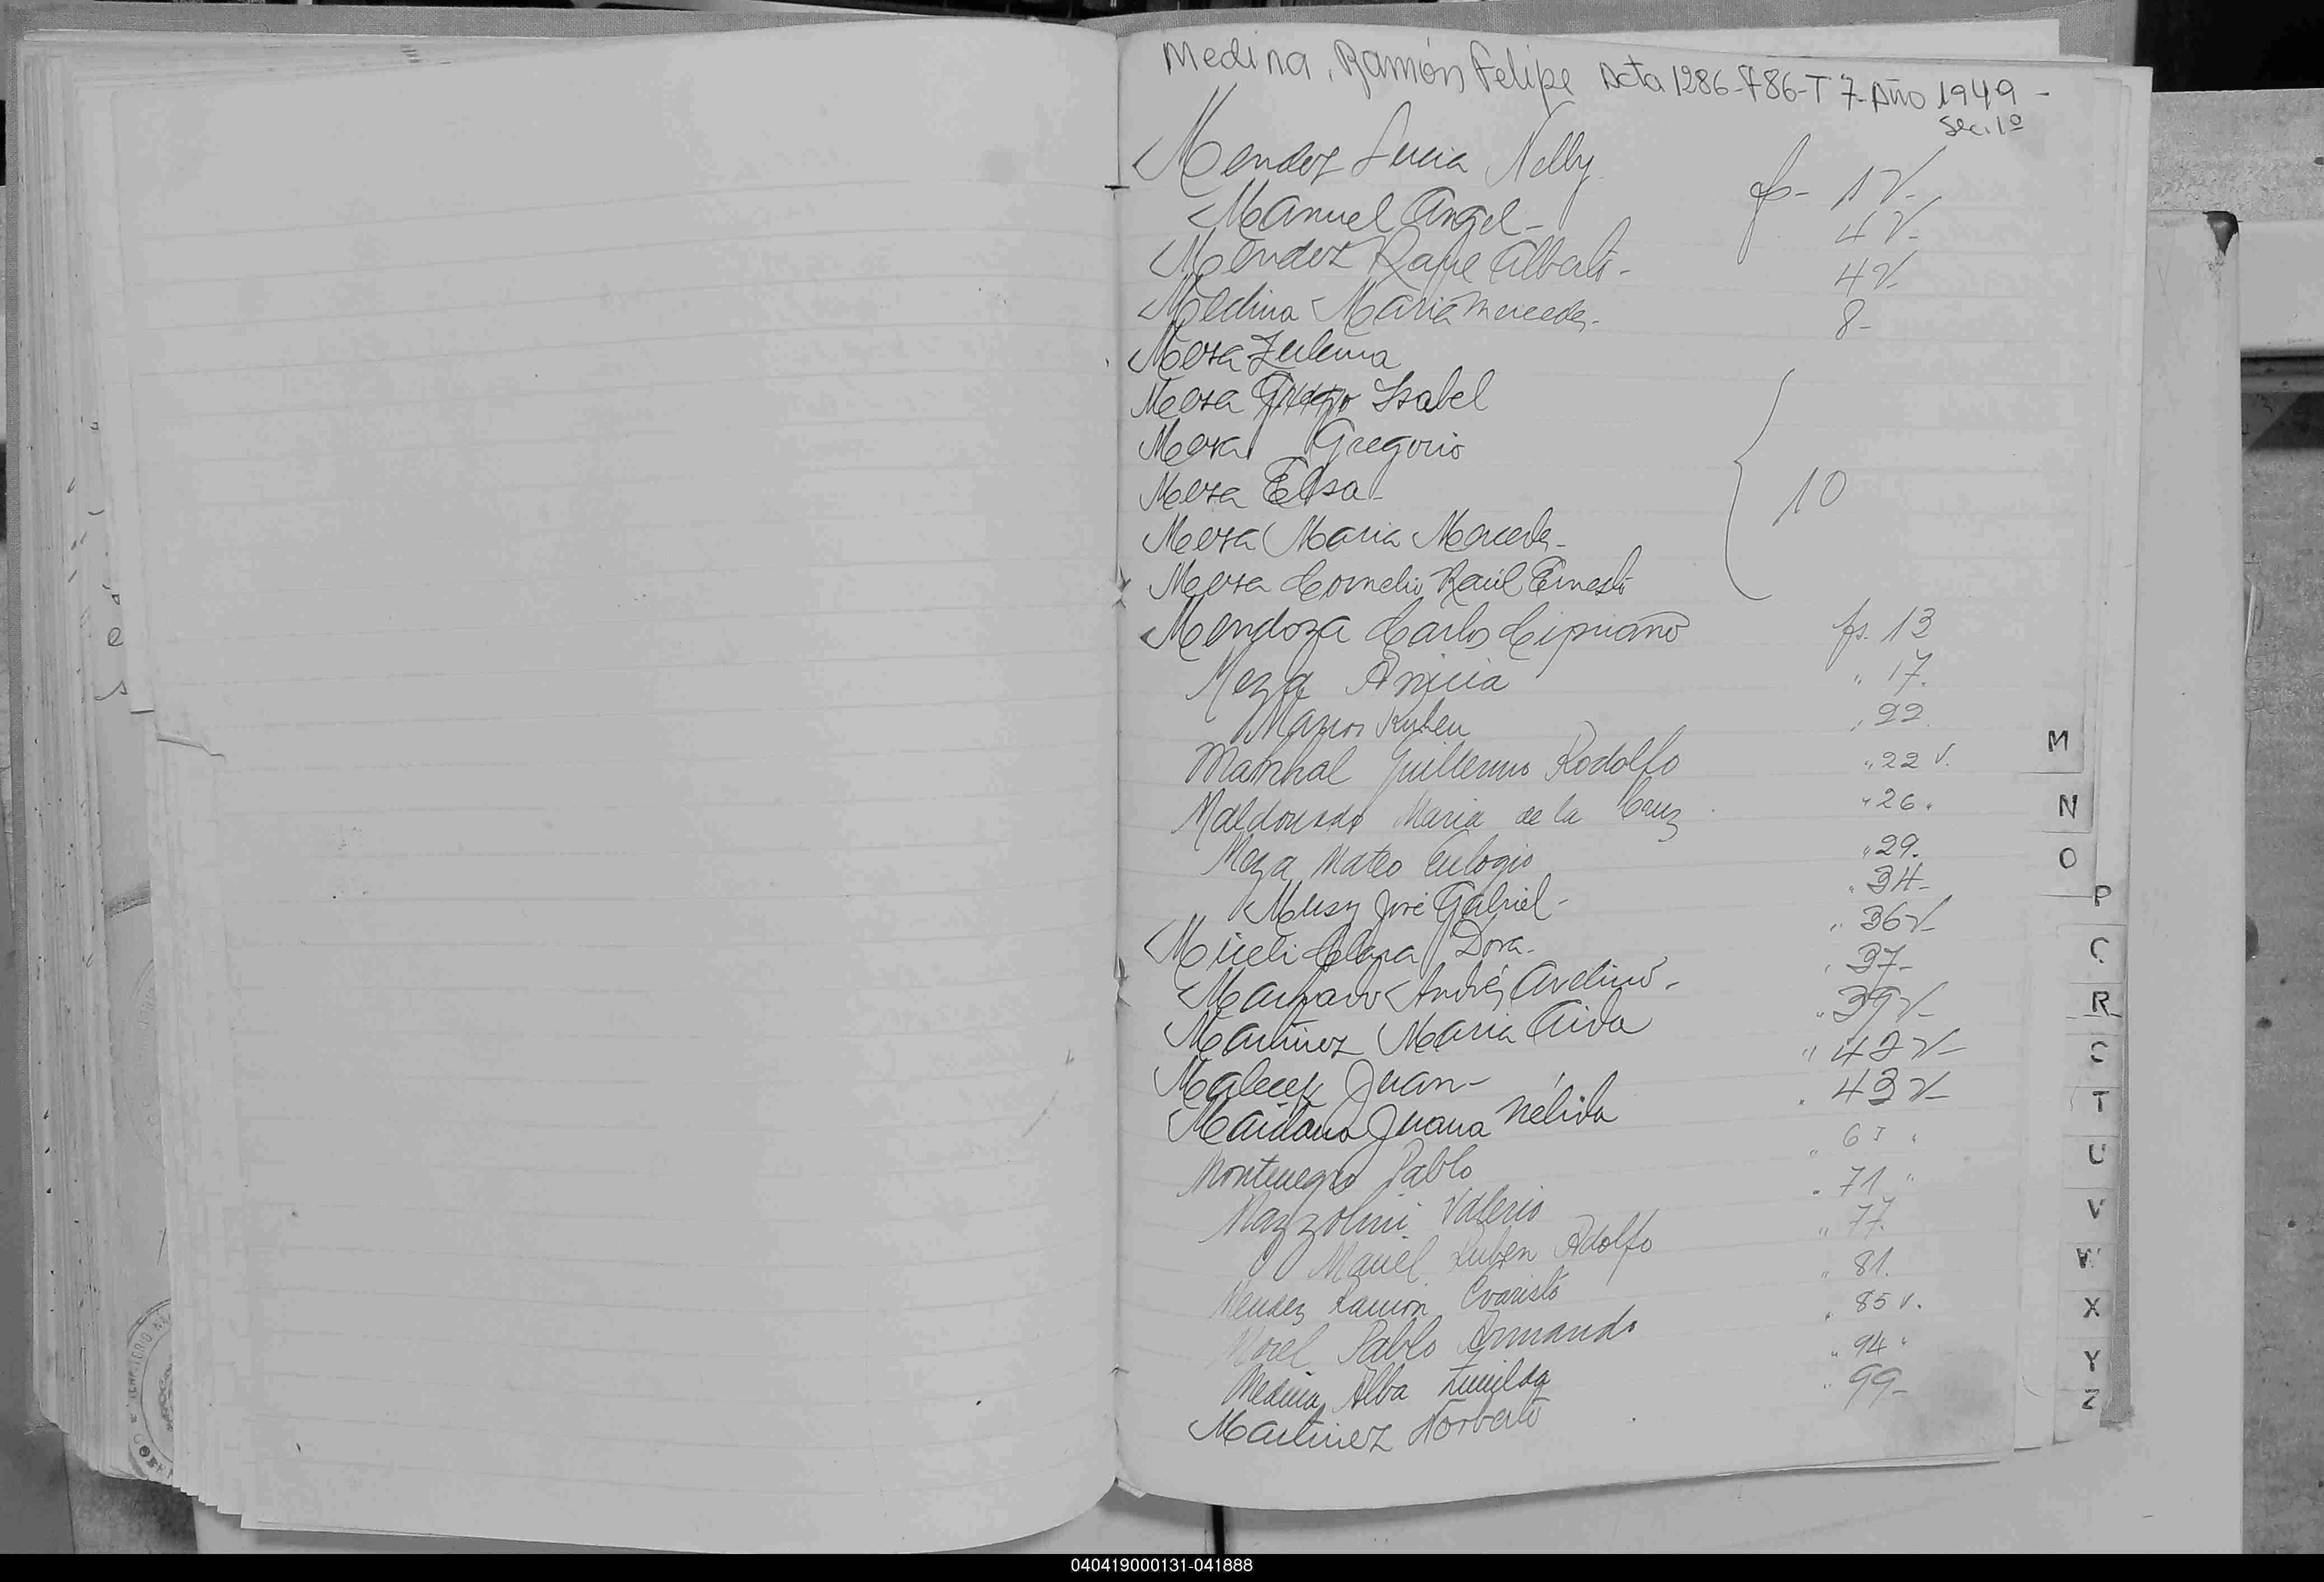 Medina, Ramón Felipe Acta 1286-786-T 7-Año 1949-
Sec. 1º
Mendez Lucia Nelly fs- 1V-
Manuel Angel- 4V-
Mendez Alberto- 4V-
Medina Maria Mercedes- 8-
Meza Zulema
Meza Isabel
Meza Gregorio
Meza Elsa- 10
Meza Maria Mercedes-
Meza Cornelio Raúl Ernesto
Mendoza Carlos Cipriano fs. 13
Meza Anicia " 17.
Ruben " 22.
Guillermo Rodolfo " 22 V.
Maldonado Maria de la Cruz " 26.
Meza Mateo Eulogio " 29.
José Gabriel- " 34-
Clara Dora- " 36V-
Andrés Avelino- " 37-
Martinez Maria Aida " 39V-
Juan- " 42V-
Maidana Juana Nélida " 43V-
Montenegro Pablo "
Mazzolini Valerio " 71 "
Ruben Adolfo " 77.
Mendez Ramon Evaristo " 81.
Morel Pablo Armando " 85 V.
Medina Alba " 94 "
Martinez Norberto " 99-
M
N
O
P
R
T
U
V
W
X
Y
Z
040419000131-041888